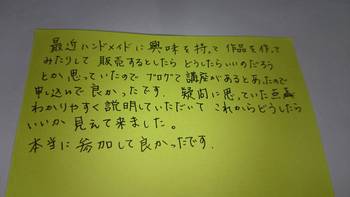 最近ハンドメイドに興味を持って作品を作って
みたりして 販売するとしたら どうしたらいいのだろう
とか思っていたので ブログで講座があるとあったので
申し込んで良かったです。 疑問に思っていた
わかりやすく説明していただいて これからどうしたら
いいか 見えて来ました。
本当に参加して良かったです。